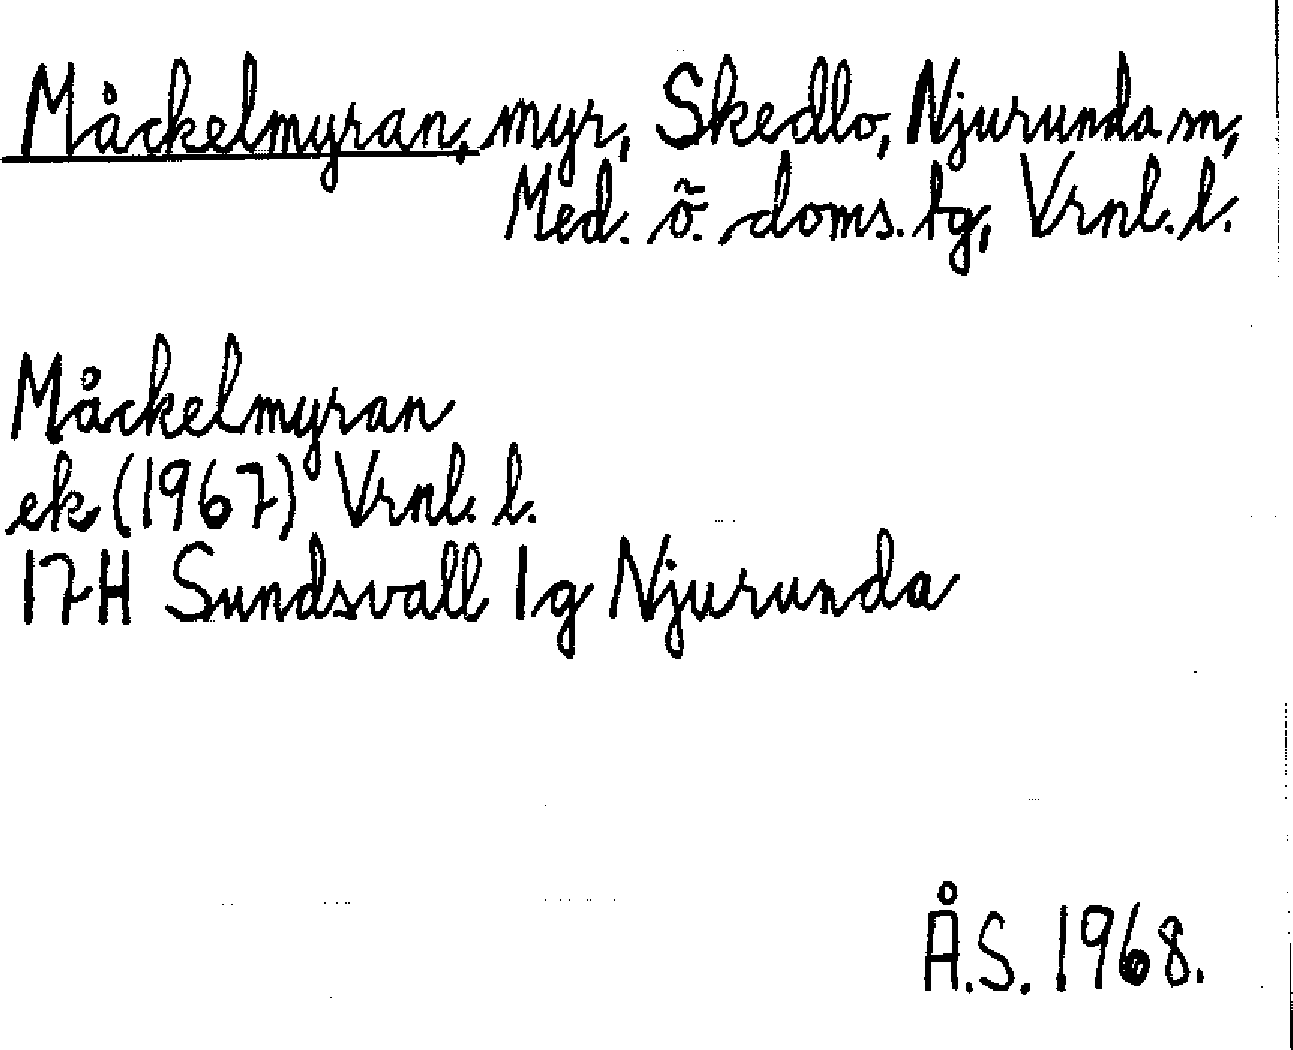 Måckelmyran, myr, Skedlo, Njurunda sn,
Med. ö. doms. tg, Vrnl. l.
Måckelmyran
ek (1967) Vrnl. l.
17H Sundsvall 1g Njurunda
Å.S. 1968.